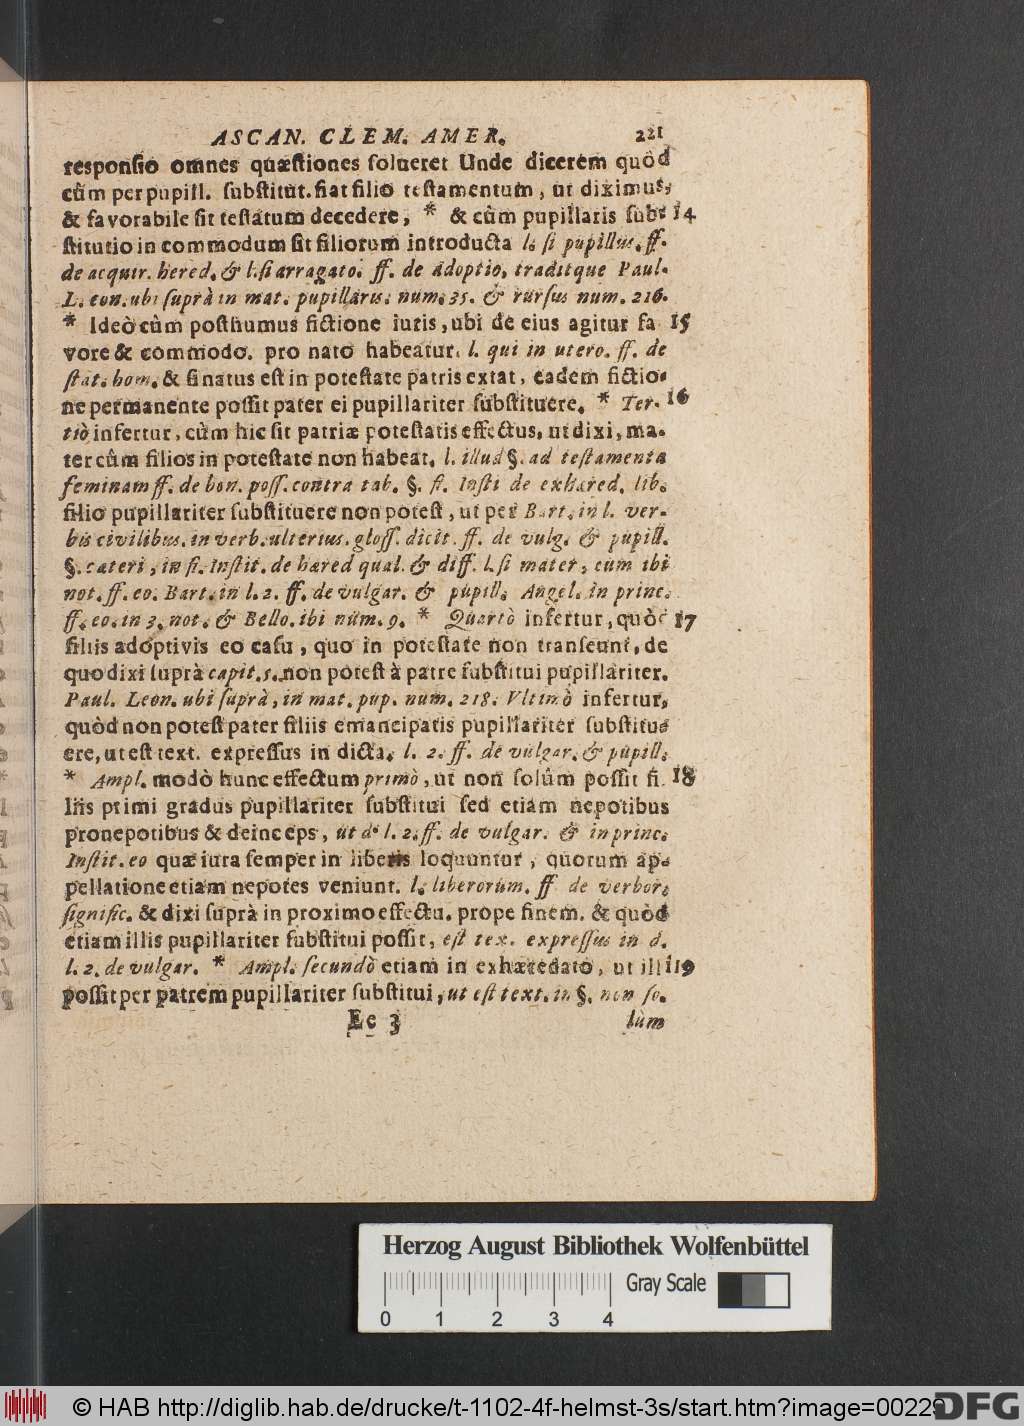 ASCAN. CLEM. AMER. 221
responsio omnes quæstiones solveret Unde dicerem quòd
cûm per pupill. substitut. fiat filio testamentum, ut diximus,
& favorabile sit testatum decedere, * & cûm pupillaris sub- 14
stitutio in commodum sit filiorum introducta l. si pupillus. ff.
de acquir. hered. & l. si arragato. ff. de adoptio, traditque Paul.
L. eon. ubi suprà in mat. pupillaris. num. 35. & rursus num. 216.
* Ideò cûm posthumus fictione iuris, ubi de eius agitur fa 15
vore & commodo. pro nato habeatur. l. qui in utero. ff. de
stat. hom. & si natus est in potestate patris extat, eadem fictio-
ne permanente possit pater ei pupillariter substituere. * Ter- 16
tiò infertur, cùm hic sit patriæ potestatis effectus, ut dixi, ma-
ter cûm filios in potestate non habeat. l. illud §. ad testamenta
feminam ff. de bon. poss. contra tab. §. fi. Insti de exhæred. lib.
filio pupillariter substituere non potest, ut per Bart. in l. ver-
bis civilibus. in verb. ulterius. gloss. dicit. ff. de vulg. & pupill.
§. cæteri, in fi. Instit. de hæred qual. & diff. l. si mater, cum ibi
not. ff. eo. Bart. in l. 2. ff. de vulgar. & pupill. Angel. in princ.
ff. eo. in 3. not. & Bello. ibi num. 9. * Quartò infertur, quòd 17
filiis adoptivis eo casu, quo in potestate non transeunt, de
quo dixi suprà capit. 5. non potest à patre substitui pupillariter.
Paul. Leon. ubi suprà, in mat. pup. num. 218. Vltimò infertur,
quòd non potest pater filiis emancipatis pupillariter substitue
ere, ut est text. expressus in dicta. l. 2. ff. de vulgar. & pupill.
* Ampl. modò hunc effectum primò, ut non solûm possit fi. 18
liis primi gradus pupillariter substitui sed etiam nepotibus
pronepotibus & deinceps, ut d. l. 2. ff. de vulgar. & in princ.
Instit. eo quæ iura semper in liberis loquuntur, quorum ap-
pellatione etiam nepotes veniunt. l. liberorum. ff de verbor.
signific. & dixi suprà in proximo effectu. prope finem. & quòd
etiam illis pupillariter substitui possit, est tex. expressus in d.
l. 2. de vulgar. * Ampl. secundò etiam in exhæredato, ut illi 19
possit per patrem pupillariter substitui, ut est text. in §. non so.
Ee 3 lùm
Herzog August Bibliothek Wolfenbüttel
Gray Scale
0 1 2 3 4
© HAB http://diglib.hab.de/drucke/t-1102-4f-helmst-3s/start.htm?image=00229
DFG